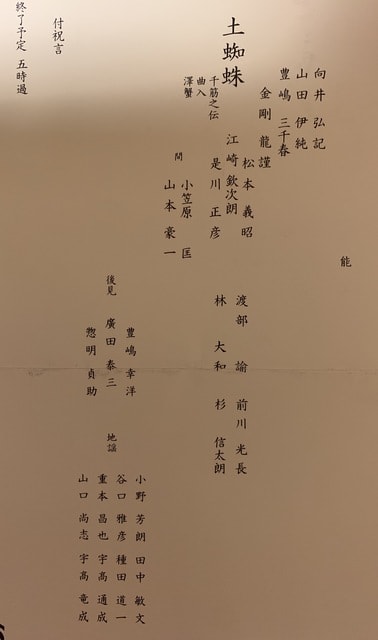 能
向井 弘記
山田 伊純
豊嶋 三千春
金剛 龍謹
土蜘蛛
千筋之伝
曲入
澤蟹
松本 義昭
江崎 欽次朗
是川 正彦
間
小笠原 匡
山本 豪一
渡部 諭 前川 光長
林 大和 杉 信太朗
後見
豊嶋 幸洋
廣田 泰三
惣明 貞助
地謡
小野 芳朗 田中 敏文
谷口 雅彦 種田 道一
重本 昌也 宇髙 通成
山口 尚志 宇髙 竜成
付祝言
終了予定 五時過